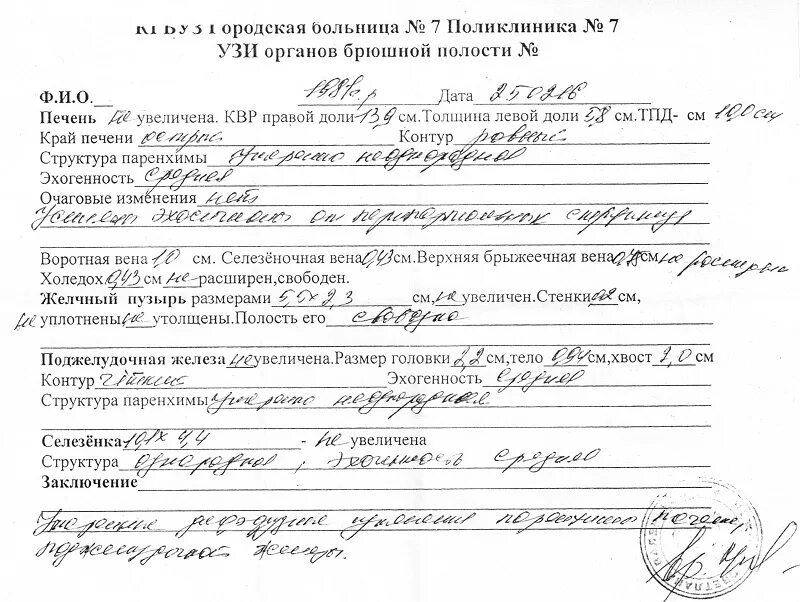 КГБУЗ Городская больница № 7 Поликлиника № 7
УЗИ органов брюшной полости №
Ф.И.О. 1981г.р Дата 250216
Печень не увеличена. КВР правой доли 13,9 см.Толщина левой доли 5,8 см.ТПД- см 10,0 см
Край печени острый Контур ровный
Структура паренхимы умеренно неоднородная
Эхогенность средняя
Очаговые изменения нет
Усилены эхосигналы от перипортальных
Воротная вена 1,0 см. Селезёночная вена 0,43 см.Верхняя брыжеечная вена см не расширены
Холедох 0,43 см не расширен,свободен.
Желчный пузырь размерами 5,5х2,3 см, не увеличен.Стенки 0,2 см,
не уплотнены, не утолщены.Полость его свободна
Поджелудочная железа не увеличена.Размер головки 2,2 см,тело 0,94 см,хвост 2,0 см
Контур чёткий Эхогенность средняя
Структура паренхимы умеренно неоднородная
Селезёнка 10,1х4,4 - не увеличена
Структура однородная, эхогенность средняя
Заключение
Умеренные диффузные изменения паренхимы печени,
поджелудочной железы.